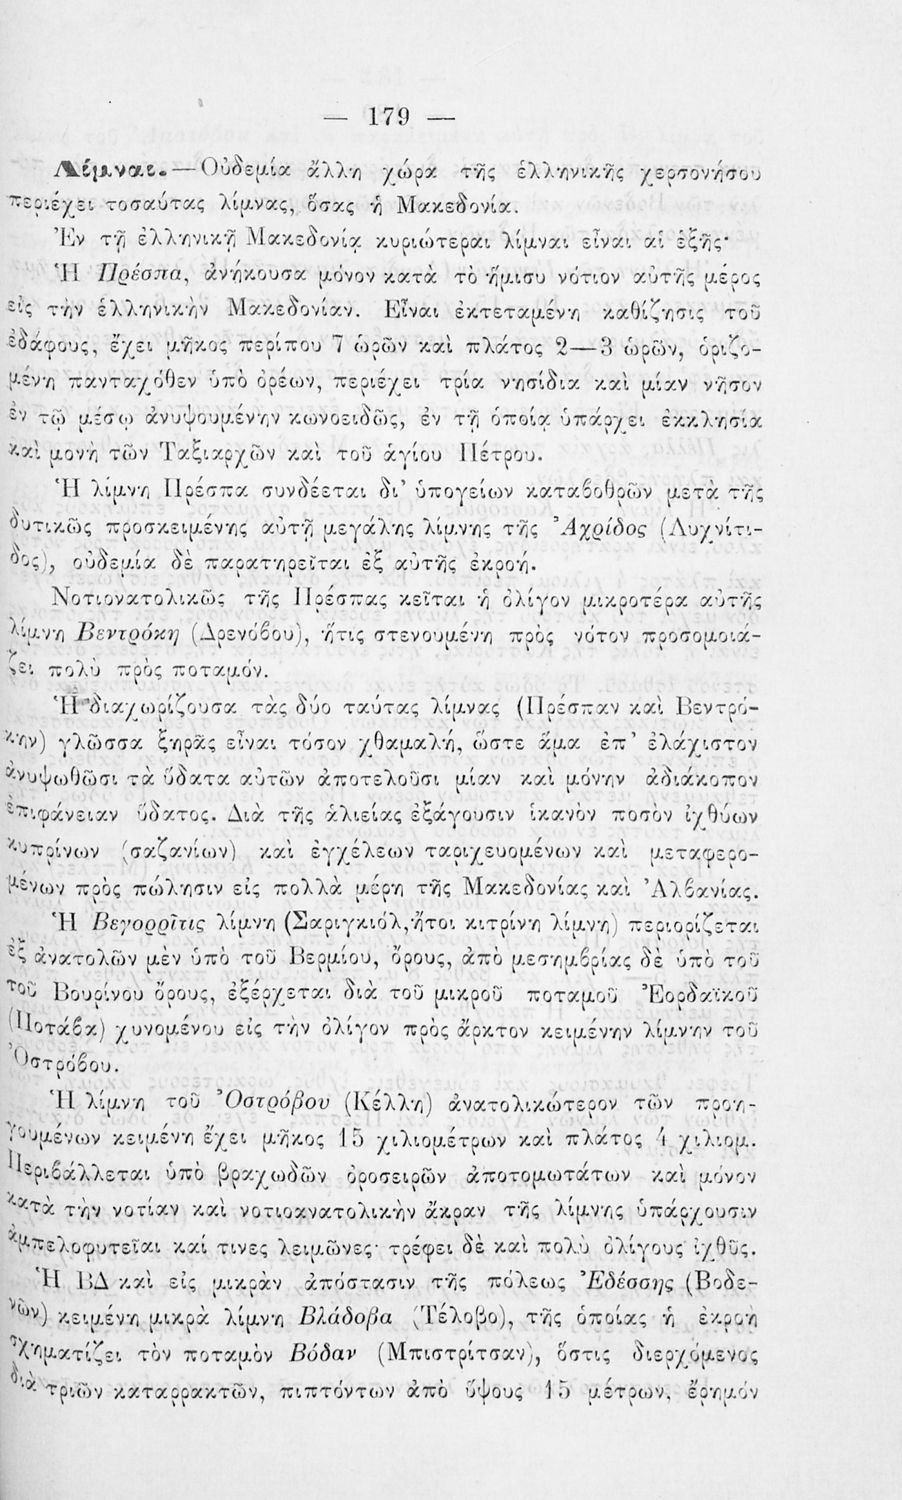 — 179 —
Λίμναι.—Οὐδεμία ἄλλη χώρα τῆς ἑλληνικῆς χερσονήσου
περιέχει τοσαύτας λίμνας, ὅσας ἡ Μακεδονία.
Ἐν τῇ ἑλληνικῇ Μακεδονίᾳ κυριώτεραι λίμναι εἶναι αἱ ἑξῆς·
Ἡ Πρέσπα, ἀνήκουσα μόνον κατὰ τὸ ἥμισυ νότιον αὐτῆς μέρος
εἰς τὴν ἑλληνικὴν Μακεδονίαν. Εἶναι ἐκτεταμένη καθίζησις τοῦ
ἐδάφους, ἔχει μῆκος περίπου 7 ὡρῶν καὶ πλάτος 2—3 ὡρῶν, ὁριζο-
μένη πανταχόθεν ὑπὸ ὀρέων, περιέχει τρία νησίδια καὶ μίαν νῆσον
ἐν τῷ μέσῳ ἀνυψουμένην κωνοειδῶς, ἐν τῇ ὁποίᾳ ὑπάρχει ἐκκλησία
καὶ μονὴ τῶν Ταξιαρχῶν καὶ τοῦ ἁγίου Πέτρου.
Ἡ λίμνη Πρέσπα συνδέεται δι' ὑπογείων καταβοθρῶν μετὰ τῆς
δυτικῶς προσκειμένης αὐτῇ μεγάλης λίμνης τῆς Ἀχρίδος (Λυχνίτι-
δος), οὐδεμία δὲ παρατηρεῖται ἐξ αὐτῆς ἐκροή.
Νοτιονατολικῶς τῆς Πρέσπας κεῖται ἡ ὀλίγον μικροτέρα αὐτῆς
λίμνη Βεντρόκη (Δρενόβου), ἥτις στενουμένη πρὸς νότον προσομοιά-
ζει πολὺ πρὸς ποταμόν.
Ἡ διαχωρίζουσα τὰς δύο ταύτας λίμνας (Πρέσπαν καὶ Βεντρό-
κην) γλῶσσα ξηρᾶς εἶναι τόσον χθαμαλή, ὥστε ἅμα ἐπ' ἐλάχιστον
ἀνυψωθῶσι τὰ ὕδατα αὐτῶν ἀποτελοῦσι μίαν καὶ μόνην ἀδιάκοπον
ἐπιφάνειαν ὕδατος. Διὰ τῆς ἁλιείας ἐξάγουσιν ἱκανὸν ποσὸν ἰχθύων
κυπρίνων (σαζανίων) καὶ ἐγχέλεων ταριχευομένων καὶ μεταφερο-
μένων πρὸς πώλησιν εἰς πολλὰ μέρη τῆς Μακεδονίας καὶ Ἀλβανίας.
Ἡ Βεγορρῖτις λίμνη (Σαριγκιόλ, ἤτοι κιτρίνη λίμνη) περιορίζεται
ἐξ ἀνατολῶν μὲν ὑπὸ τοῦ Βερμίου, ὄρους, ἀπὸ μεσημβρίας δὲ ὑπὸ τοῦ
τοῦ Βουρίνου ὄρους, ἐξέρχεται διὰ τοῦ μικροῦ ποταμοῦ Ἐορδαϊκοῦ
(Ποτάβα) χυνομένου εἰς τὴν ὀλίγον πρὸς ἄρκτον κειμένην λίμνην τοῦ
Ὀστρόβου.
Ἡ λίμνη τοῦ Ὀστρόβου (Κέλλη) ἀνατολικώτερον τῶν προη-
γουμένων κειμένη ἔχει μῆκος 15 χιλιομέτρων καὶ πλάτος 4 χιλιομ.
Περιβάλλεται ὑπὸ βραχωδῶν ὀροσειρῶν ἀποτομωτάτων καὶ μόνον
κατὰ τὴν νοτίαν καὶ νοτιοανατολικὴν ἄκραν τῆς λίμνης ὑπάρχουσιν
ἀμπελοφυτεῖαι καί τινες λειμῶνες· τρέφει δὲ καὶ πολὺ ὀλίγους ἰχθῦς.
Ἡ ΒΔ καὶ εἰς μικρὰν ἀπόστασιν τῆς πόλεως Ἐδέσσης (Βοδε-
νῶν) κειμένη μικρὰ λίμνη Βλάδοβα (Τέλοβο), τῆς ὁποίας ἡ ἐκροὴ
σχηματίζει τὸν ποταμὸν Βόδαν (Μπιστρίτσαν), ὅστις διερχόμενος
διὰ τριῶν καταρρακτῶν, πιπτόντων ἀπὸ ὕψους 15 μέτρων, ἔρημόν